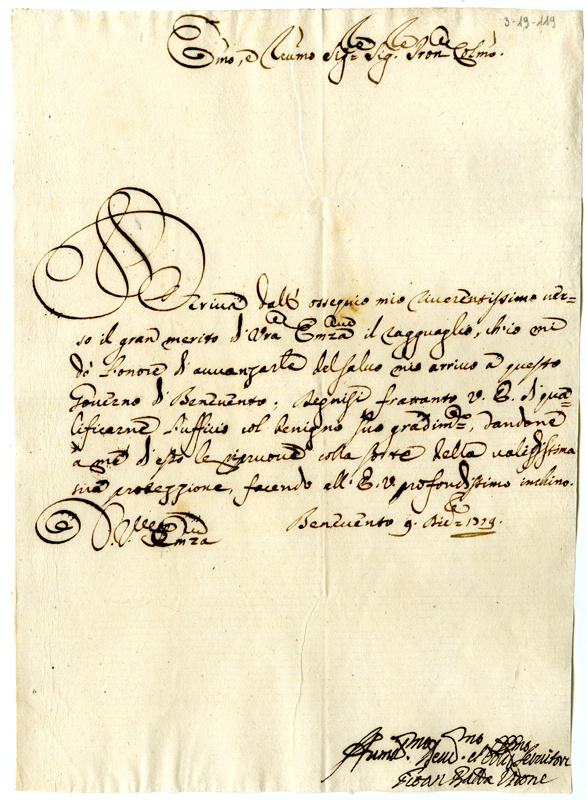 3-19-119
Emo, e Rmo Sigre Sig. Pron Colmo.
Deriva dall' ossequio mio riverentissimo ver=
so il gran merito di Vra Emza il ragguaglio, ch'io me
dò l'onore d'avvanzarle del salvo mio arrivo a questo
Governo di Benevento. Degnisi frattanto V. E. di qua=
lificarne l'ufficio col benigno suo gradimto, dandone
a me d'esso le riprove colla sorte della validissima
sua protezzione, facendo all' E. V profondissimo inchino.
Benevento 9. 1719.
D. V. Emza
Hummo Devmo et Obbmo Servitore
Gioan Batta